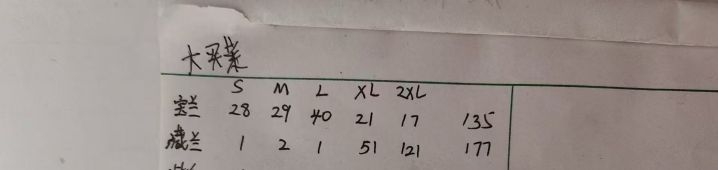 大买菜
S M L XL 2XL
宝兰 28 29 40 21 17 135
藏兰 1 2 1 51 121 177